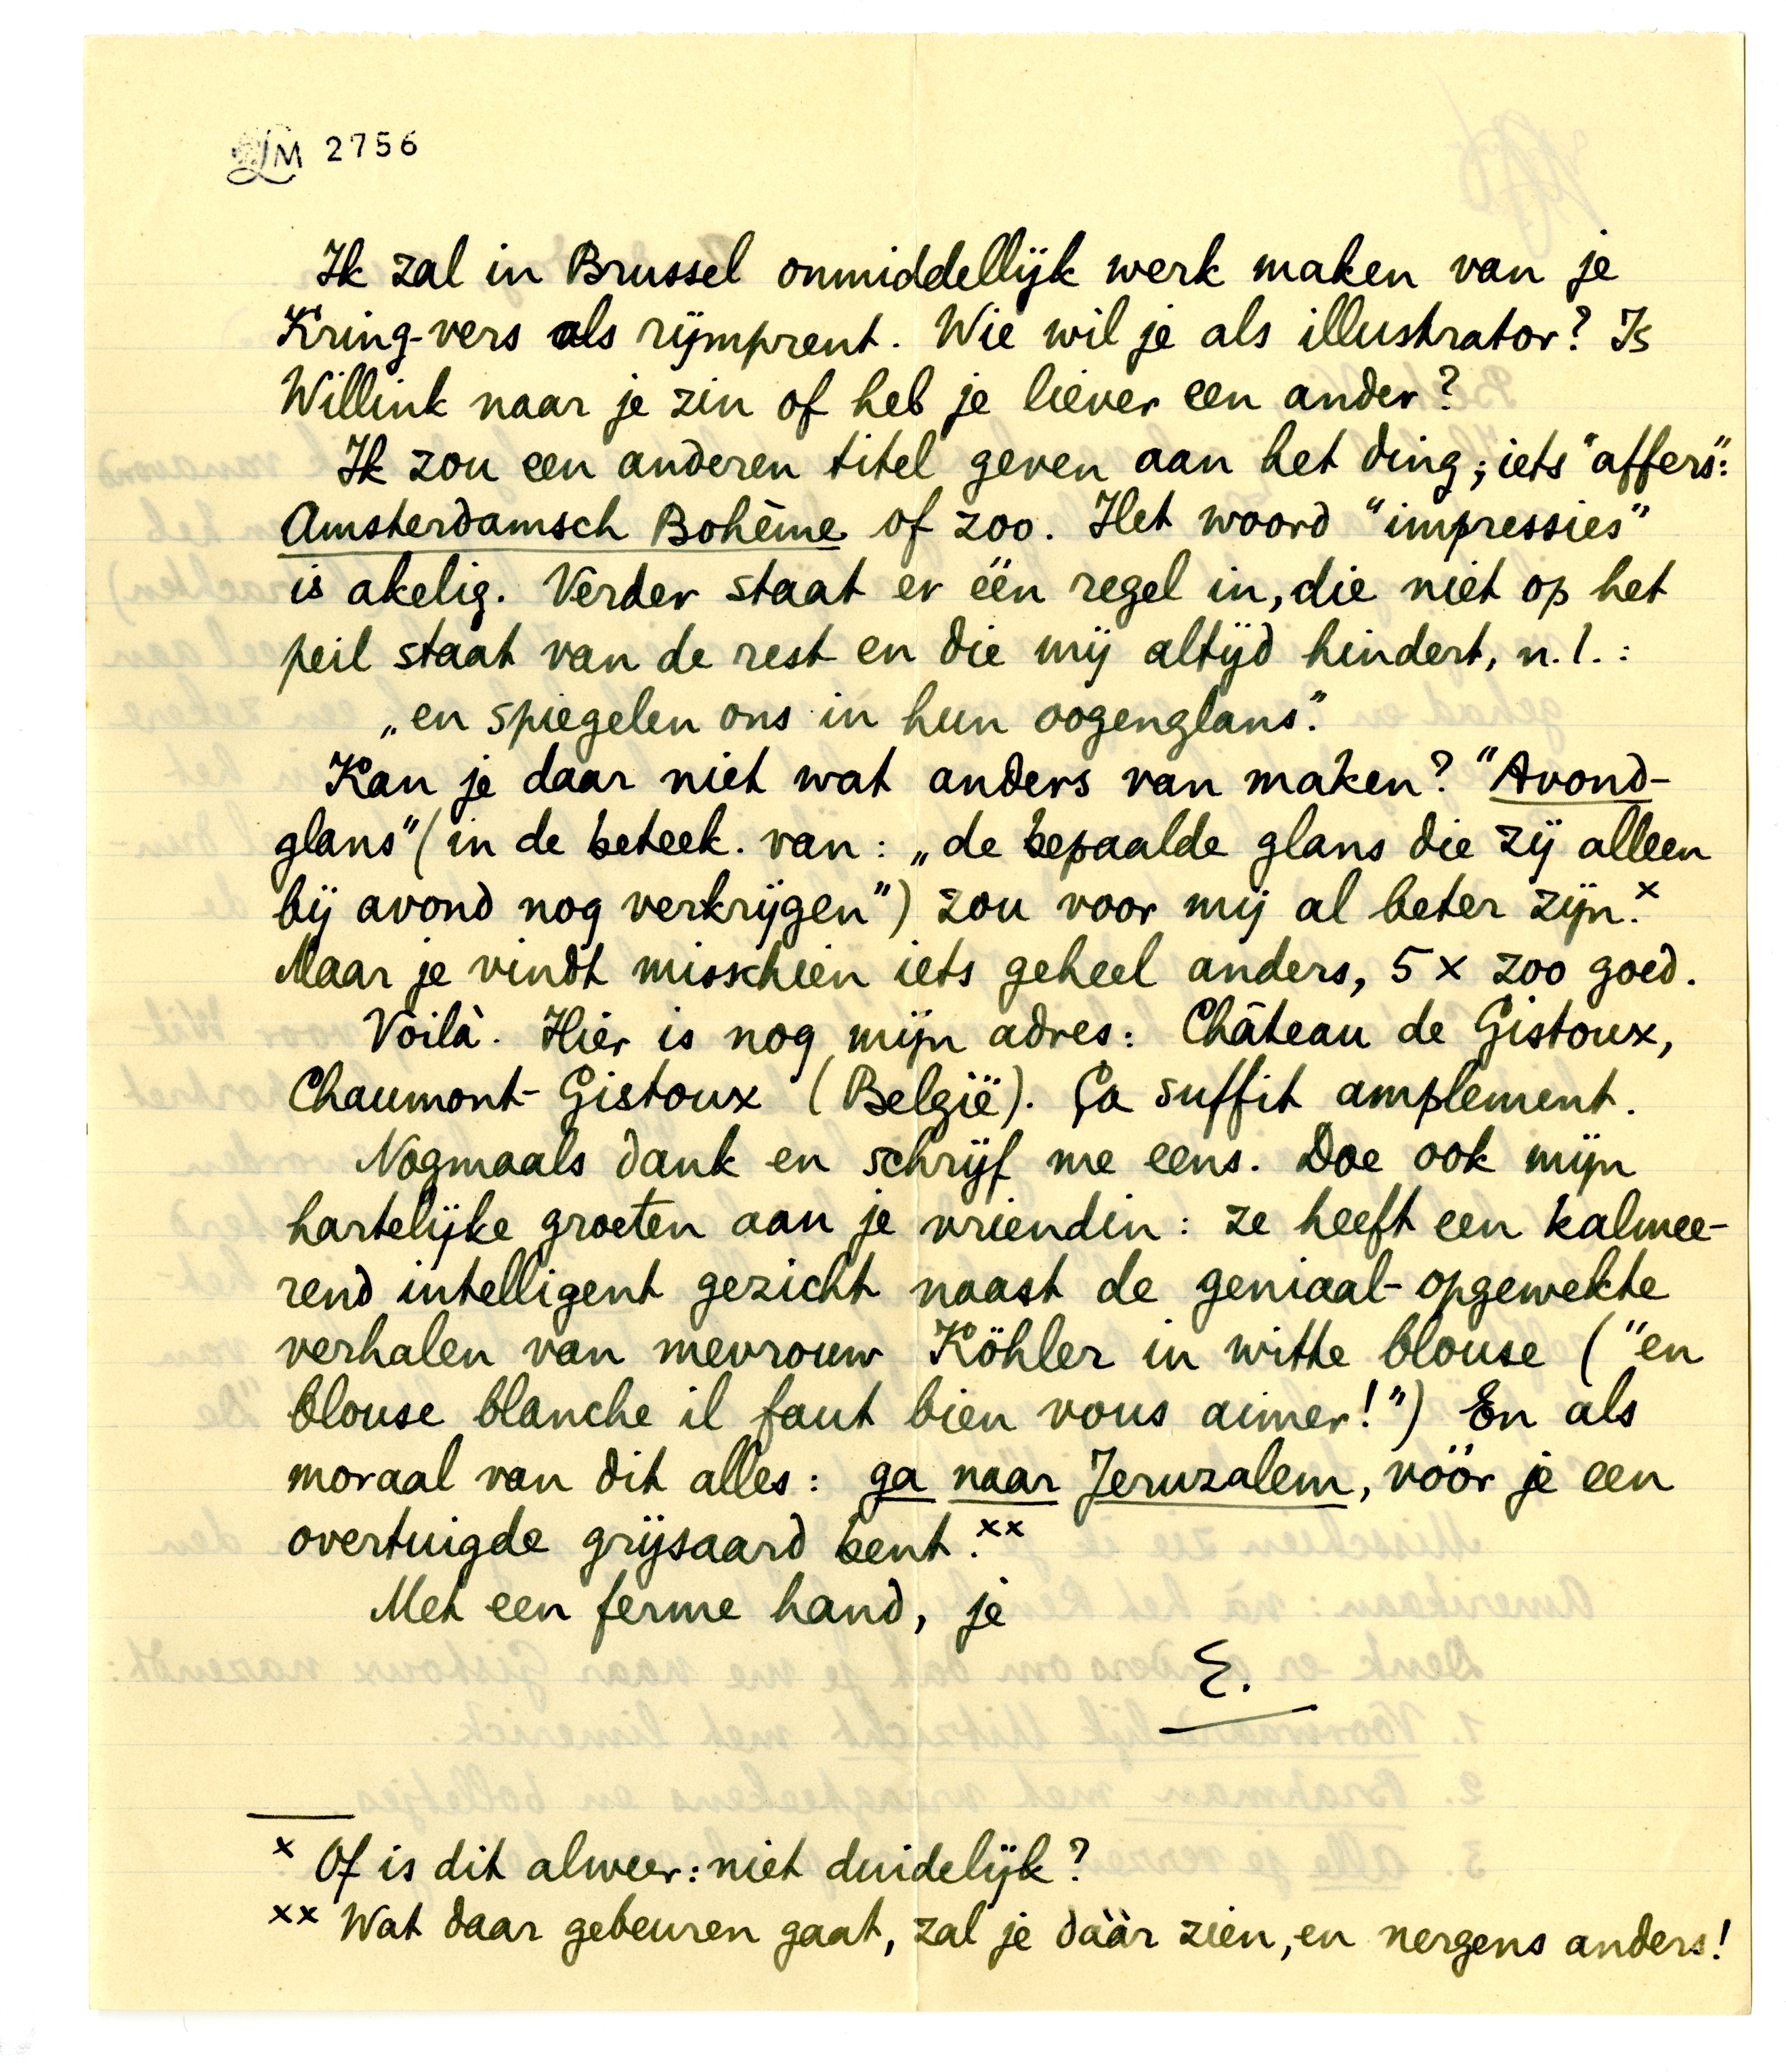 LM 2756
Ik zal in Brussel onmiddellijk werk maken van je
Kring-vers als rijmprent. Wie wil je als illustrator? Is
Willink naar je zin of heb je liever een ander?
Ik zou een anderen titel geven aan het ding; iets "affers":
Amsterdamsch Bohême of zoo. Het woord "impressies"
is akelig. Verder staat er één regel in, die niet op het
peil staat van de rest en die mij altijd hindert, n.l.:
„en spiegelen ons in hun oogenglans."
Kan je daar niet wat anders van maken? "Avond-
glans" (in de beteek. van: „de bepaalde glans die zij alleen
bij avond nog verkrijgen") zou voor mij al beter zijn.x
Maar je vindt misschien iets geheel anders, 5 x zoo goed.
Voilà. Hier is nog mijn adres: Château de Gistoux,
Chaumont-Gistoux (België). Ça suffit amplement.
Nogmaals dank en schrijf me eens. Doe ook mijn
hartelijke groeten aan je vriendin: ze heeft een kalmee-
rend intelligent gezicht naast de geniaal-opgewekte
verhalen van mevrouw Köhler in witte blouse ("en
blouse blanche il faut bien vous aimer!") En als
moraal van dit alles: ga naar Jeruzalem, vóór je een
overtuigde grijsaard bent.xx
Met een ferme hand, je
E.
x Of is dit alweer: niet duidelijk?
xx Wat daar gebeuren gaat, zal je dáár zien, en nergens anders!